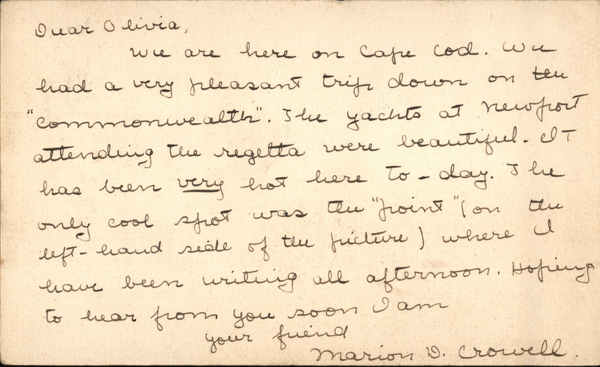 Dear Olivia,
We are here on Cape Cod. We
had a very pleasant trip down on the
"Commonwealth". The yachts at Newport
attending the regetta were beautiful. It
has been very hot here to-day. The
only cool spot was the "point" (on the
left-hand side of the picture) where I
have been writing all afternoon. Hoping
to hear from you soon I am
your friend
Marion D. Crowell.